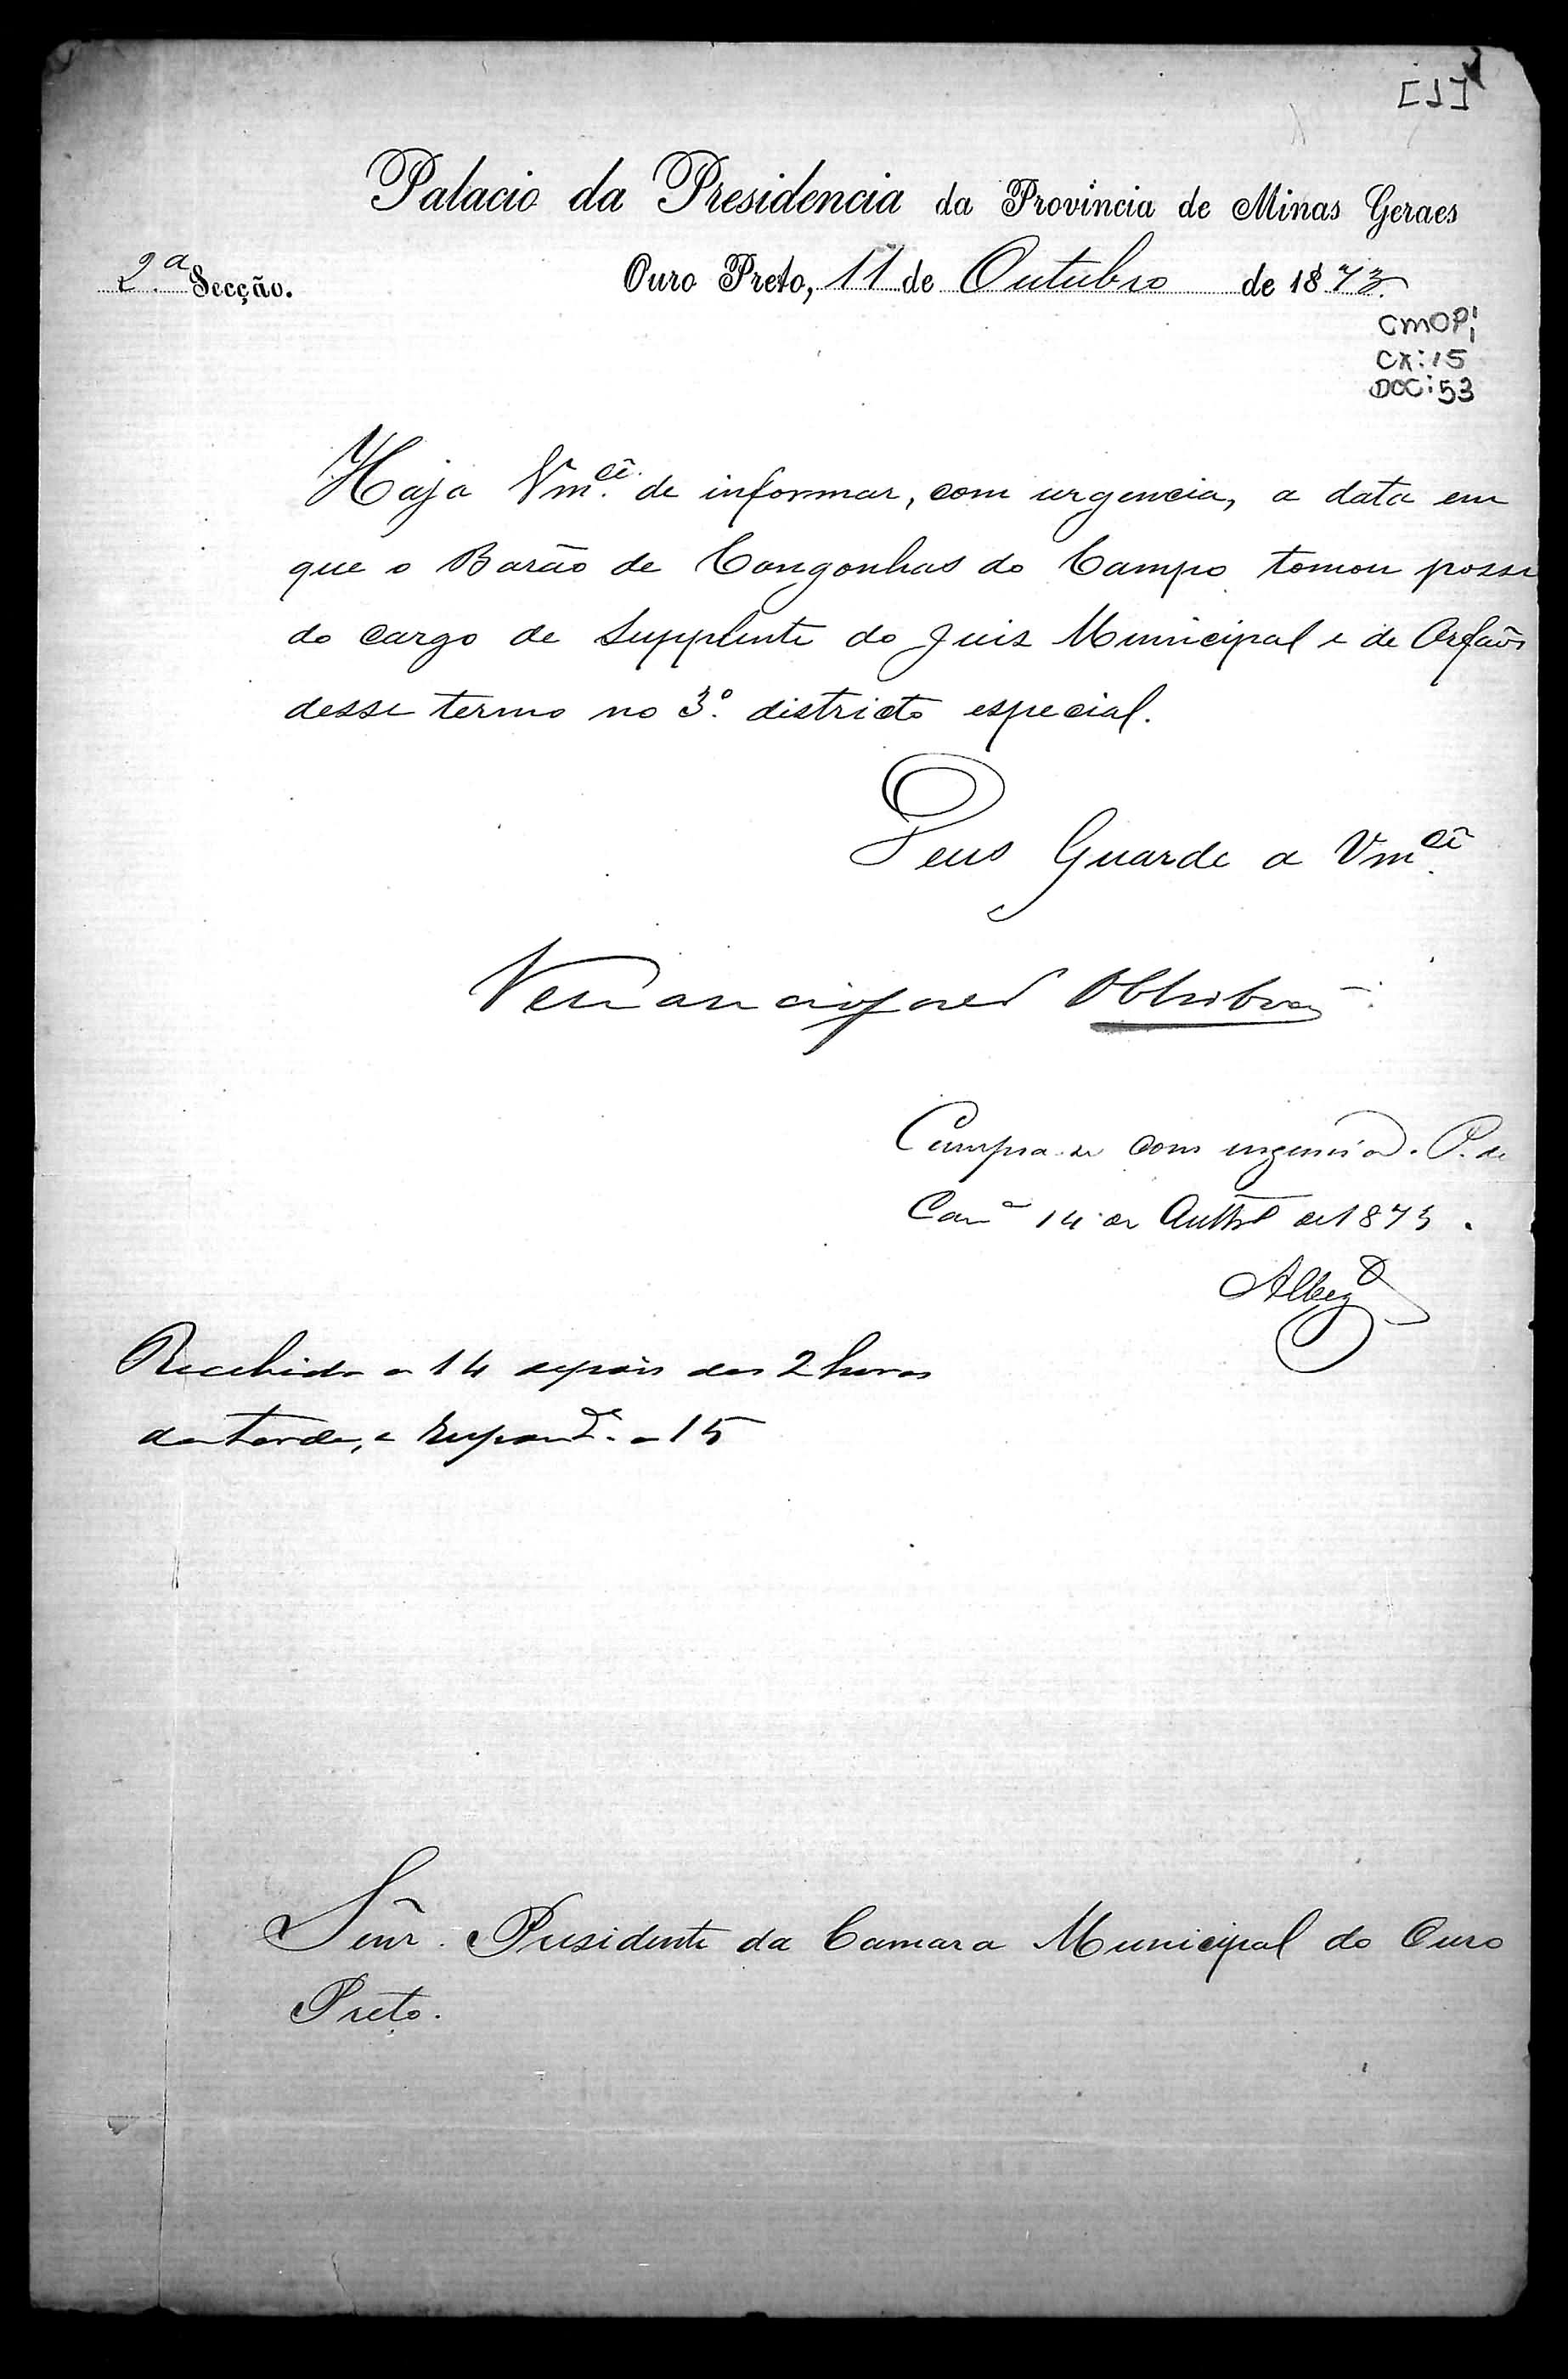 [1]
Palacio da Presidencia da Provincia de Minas Geraes
2.ª Secção.
Ouro Preto, 11 de Outubro de 1873.
CMOP;
CX: 15
DOC: 53
Haja Vm.cê de informar, com urgencia, a data em
que o Barão de Congonhas do Campo tomou posse
do cargo de Supplente do Juiz Municipal e de Orfãos
desse termo no 3.º districto especial.
Deus Guarde a Vm.cê
Venancio José d' Olivrª
Cumpra-se com urgencia. P. da
Camª 14 de Outbrº de 1873.
Recebido a 14 depois das 2 horas
da tarde, e respondº. a 15
Senr. Presidente da Camara Municipal do Ouro
Preto.